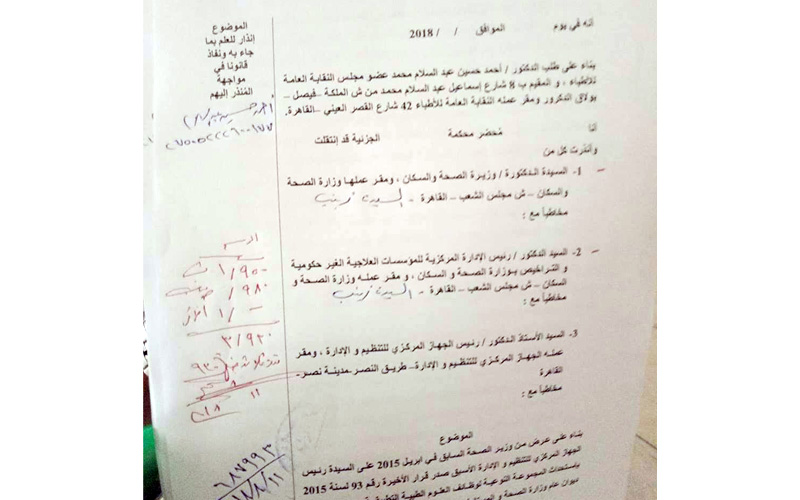 الموضوع
إنذار للعلم بما
جاء به ونفاذ
قانونا في
مواجهة
المنذر إليهم
أنه في يوم الموافق / / 2018
بناء على طلب الدكتور / أحمد حسين عبد السلام محمد عضو مجلس النقابة العامة
للأطباء ، و المقيم ب 8 شارع إسماعيل عبد السلام محمد من ش الملكة –فيصل –
بولاق الدكرور ومقر عمله النقابة العامة للأطباء 42 شارع القصر العيني –القاهرة.
أنا مُحضر محكمة الجزئية قد إنتقلت
وأنذرت كل من
1- السيدة الدكتورة / وزيرة الصحة والسكان ، ومقر عملها وزارة الصحة
والسكان – ش مجلس الشعب – القاهرة - السيدة زينب
مخاطبا مع :
2- السيد الدكتور / رئيس الإدارة المركزية للمؤسسات العلاجية الغير حكومية
و التراخيص بوزارة الصحة و السكان ، و مقر عمله وزارة الصحة و
السكان – ش مجلس الشعب – القاهرة - السيدة زينب
مخاطبا مع :
3- السيد الأستاذ الدكتور / رئيس الجهاز المركزي للتنظيم و الإدارة ، ومقر
عمله الجهاز المركزي للتنظيم و الإدارة – طريق النصر-مدينة نصر-
القاهرة
مخاطبا مع :
الموضوع
بناء على عرض من وزير الصحة السابق في ابريل 2015 على السيدة رئيس
الجهاز المركزي للتنظيم و الإدارة الأسبق صدر قرار الأخيرة رقم 93 لسنة 2015
باستحداث المجموعة النوعية لوظائف العلوم الطبية
ديوان عام وزارة الصحة و
٦٨٧٩٩٣